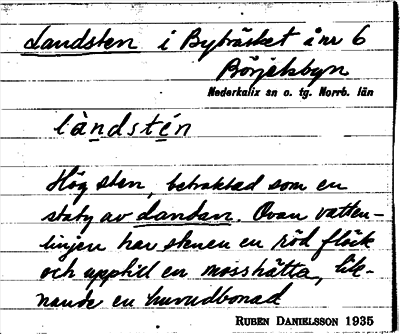 Landsten i Byträsket å nr 6
Börjelsbyn
Nederkalix sn o. tg. Norrb. län
làndstén
Hög sten, betraktad som en
staty av landan. Ovan vatten-
linjen har stenen en röd fläck
och upptill en mosshätta, lik-
nande en huvudbonad
RUBEN DANIELSSON 1935